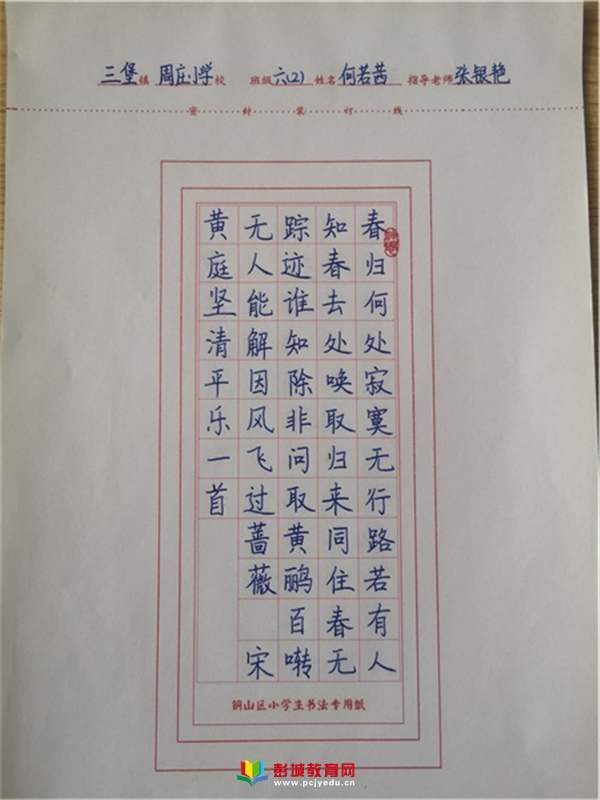 三堡镇 周庄小学校 班级六(2) 姓名何若茜 指导老师张银艳
密 封 装 订 线
春归何处寂寞无行路若有人
知春去处唤取归来同住春无
踪迹谁知除非问取黄鹂百啭
无人能解因风飞过蔷薇 宋
黄庭坚清平乐一首
铜山区小学生书法专用纸
彭城教育网
www.pcjyedu.cn